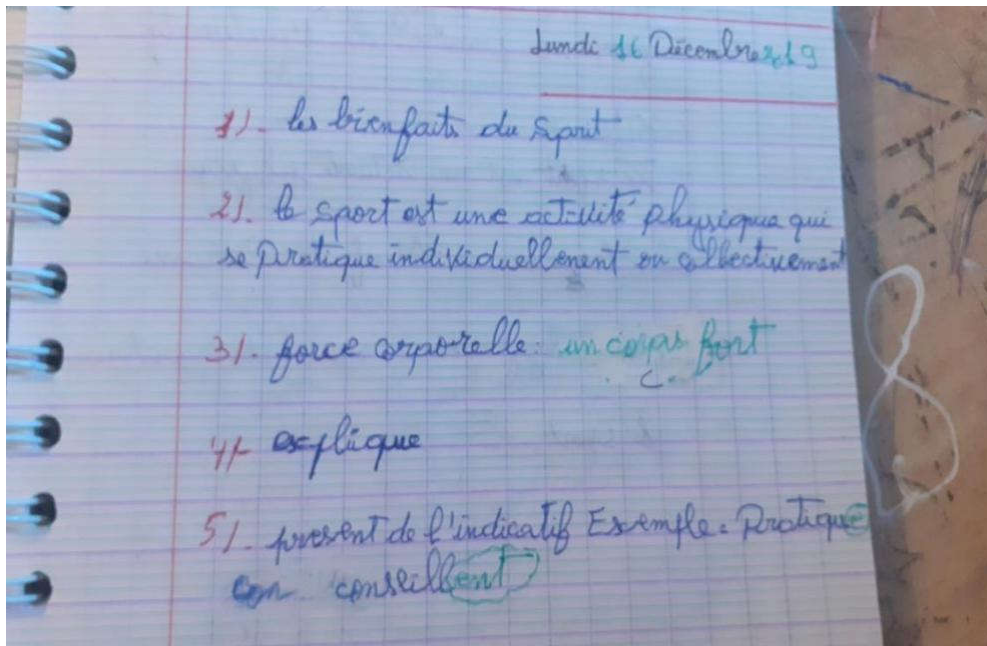 Lundi 16 Décembre 2019
1). les bienfaits du Sport
2). le sport est une activité physique qui
se pratique individuellement ou collectivement
3). force corporelle: un corps fort
4) explique
5). présent de l'indicatif Exemple: Pratique
conseillent